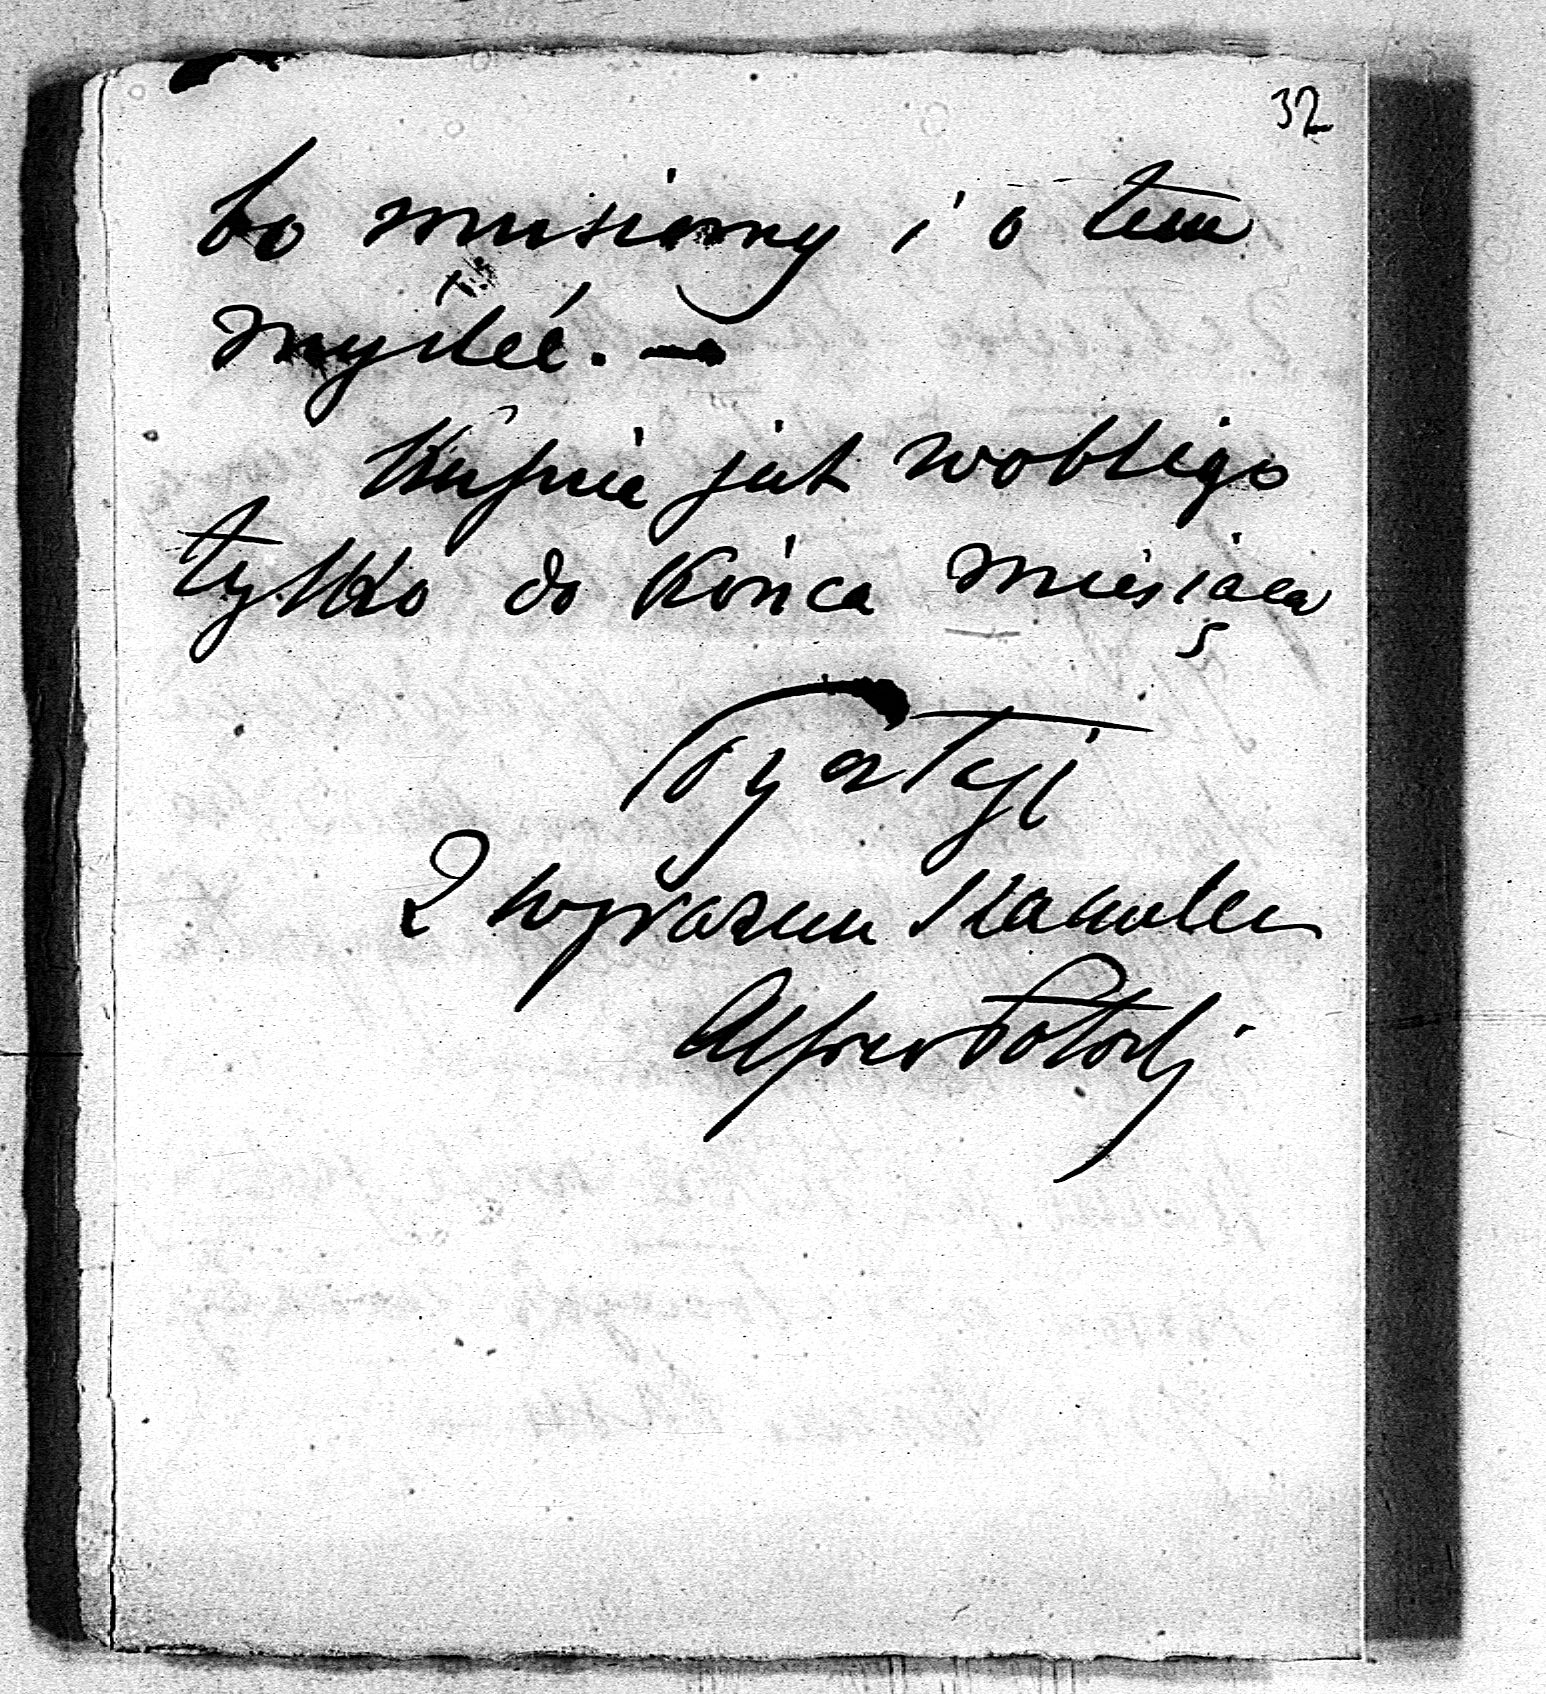 32
bo musiemy i o tem
myśleć. —
Kupnie jest wobtego
tylko do końca miesiąca
Z wyrazem szacunku
Alfred Potocki